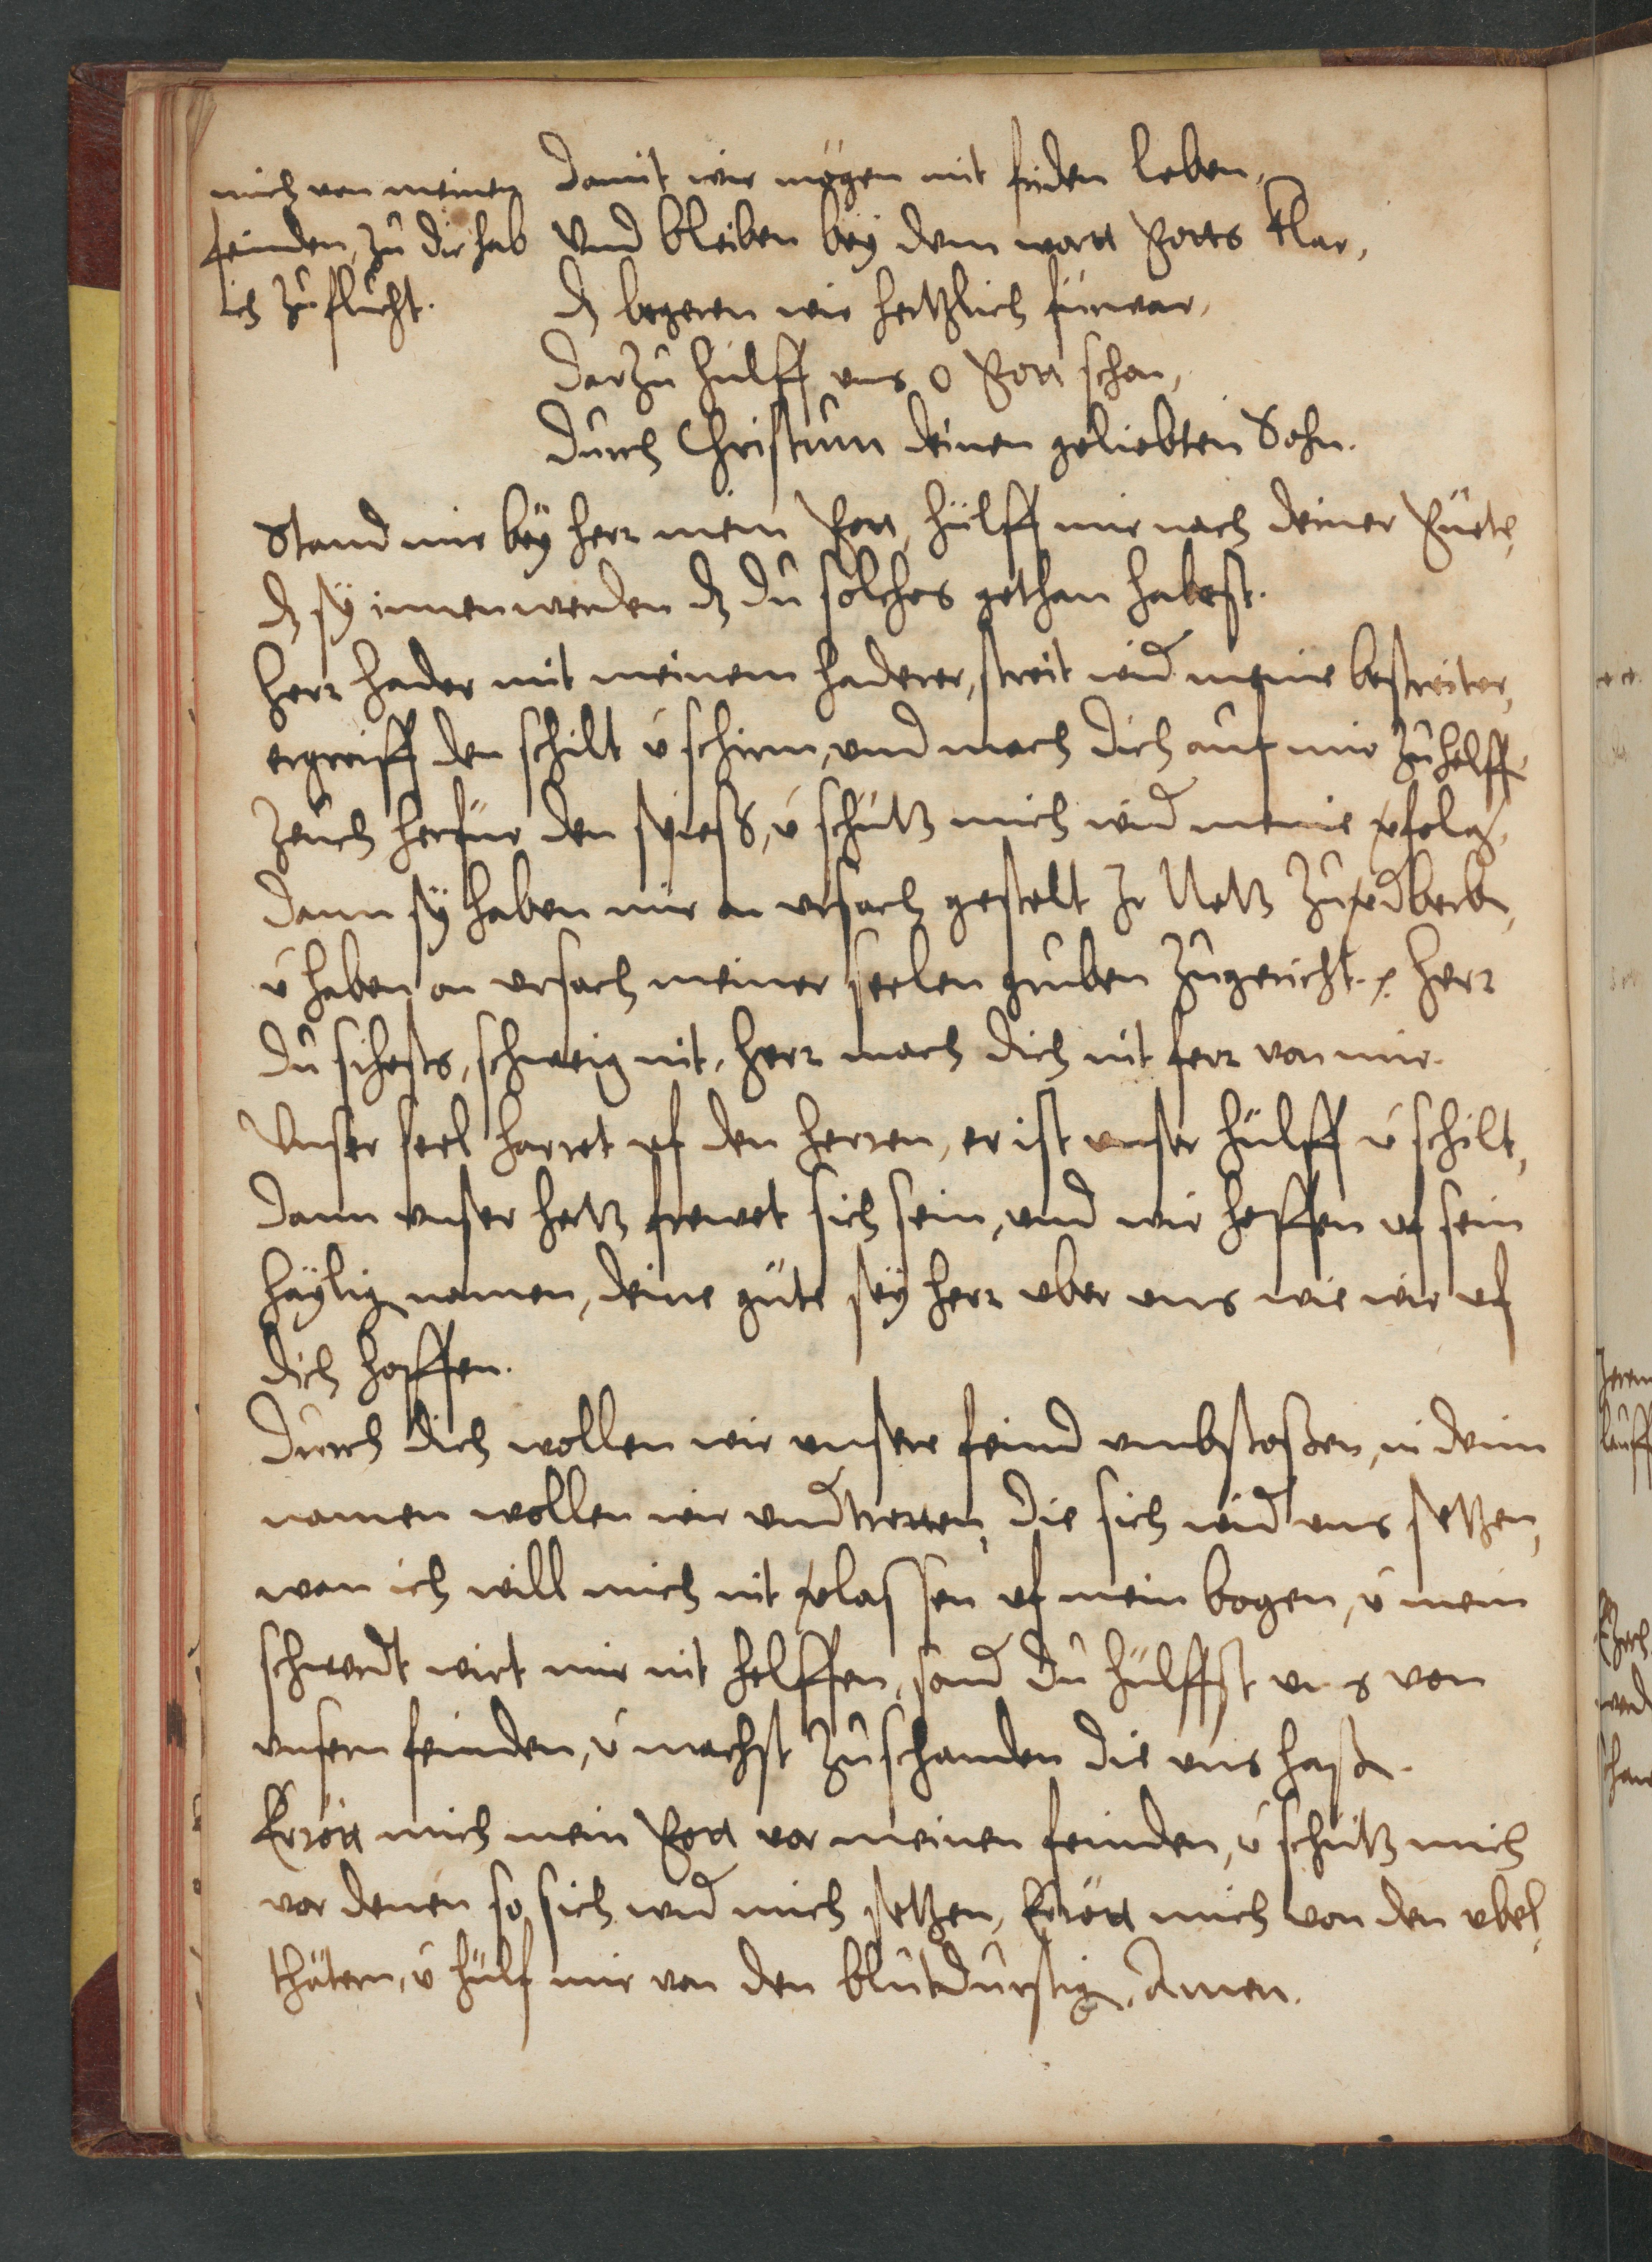 mich von meinen
feinden, zu dir hab
ich zuflucht.
Damit wir mögen mit friden leben,
Vnd bleiben bey dem wort Gotts klar,
dz begeren wir hertzlich fürwar,
Darzu hülff vns o Gott schon,
Durch Christum deinen geliebten Sohn.
Stand mir bey herr mein Gott, hülff mir nach deiner Güete,
dz sy innenwerden dz du solches gethan habest.
Herr hader mit meinem haderer, streit wid meine bestreiter,
ergreiff den schilt ü schirm, und mach dich auf mir zu helff.
Zeuch herfür den spiess, ü schütz mich wid meine vfolg,
Dann sy haben mir on vrsach gestelt Jr Netz zuvdberb,
ü haben on vrsach meiner seelen gruben zugericht. Herr
du sihests, schweig nit, herr mach dich nit ferr von mir.
Unser seel harret vf den herren, er ist vnser hülff ü schilt,
Dann vnser hertz frewet sich sein, vnd wir hoffen vf sein
häylig namen, deine güte sey herr vber vns wie wir vf
dich hoffen.
Durch dich wollen wir vnsere feind vmbstossen, in deim
namen wollen wir vndtretten, die sich wid vns setzen,
wan ich will mich nit vlassen vf mein bogen, ü mein
schwerdt wirt mir nit helffen, sond du hülffst vns von
vnsern feinden, ü machst zuschanden die vns hassen.
Errött mich mein Gott vor meinen feinden, ü schütz mich
vor denen so sich wid mich setzen, Errött mich von den vbel,
thätern, ü hülf mir von den blutdurstig, Amen.